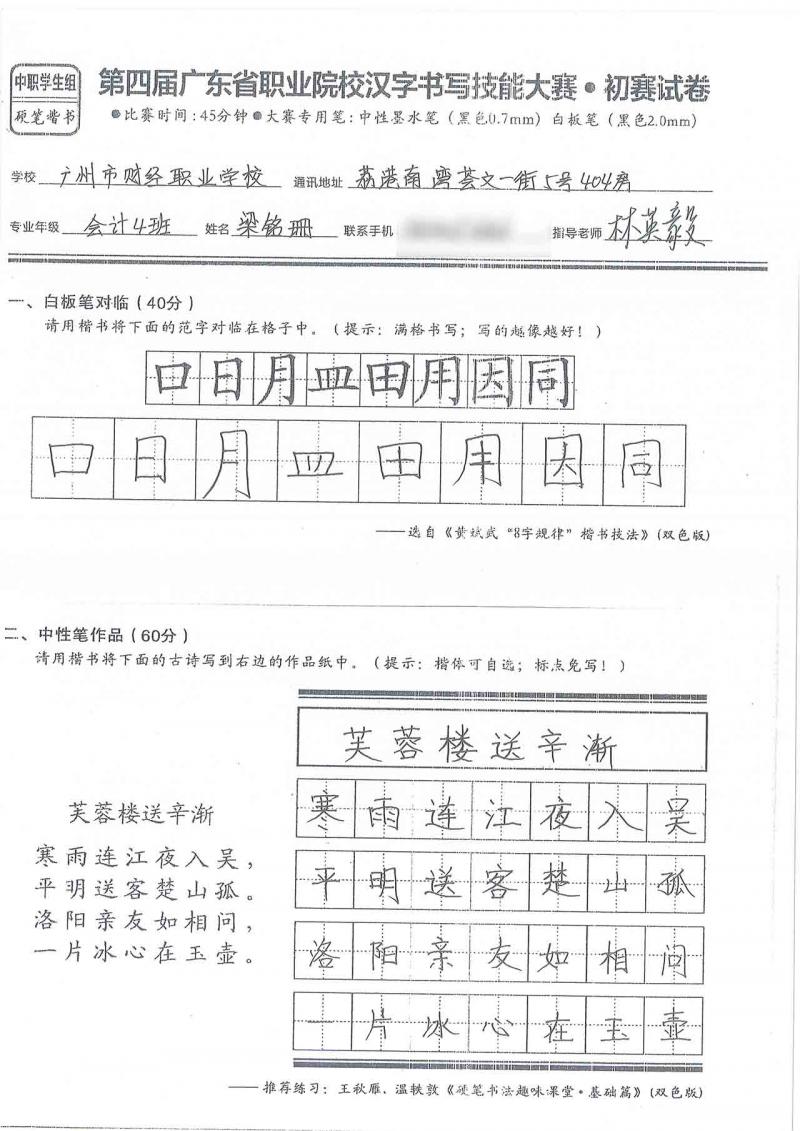 中职学生组
硬笔楷书
第四届广东省职业院校汉字书写技能大赛•初赛试卷
●比赛时间:45分钟●大赛专用笔:中性墨水笔（黑色0.7mm）白板笔（黑色2.0mm）
学校 广州市财经职业学校 通讯地址 荔港南湾荟文一街5号404房
专业年级 会计4班 姓名 梁铭珊 联系手机 指导老师 林英毅
一、白板笔对临（40分）
请用楷书将下面的范字对临在格子中。（提示：满格书写；写的越像越好！）
口日月皿田用因同
口日月皿田用因同
——选自《黄斌武“8字规律”楷书技法》(双色版)
二、中性笔作品（60分）
请用楷书将下面的古诗写到右边的作品纸中。（提示：楷体可自选；标点免写！）
芙蓉楼送辛渐
寒雨连江夜入吴，
平明送客楚山孤。
洛阳亲友如相问，
一片冰心在玉壶。
芙蓉楼送辛渐
寒雨连江夜入吴
平明送客楚山孤
洛阳亲友如相问
一片冰心在玉壶
——推荐练习：王秋雁、温轶敦《硬笔书法趣味课堂·基础篇》(双色版)